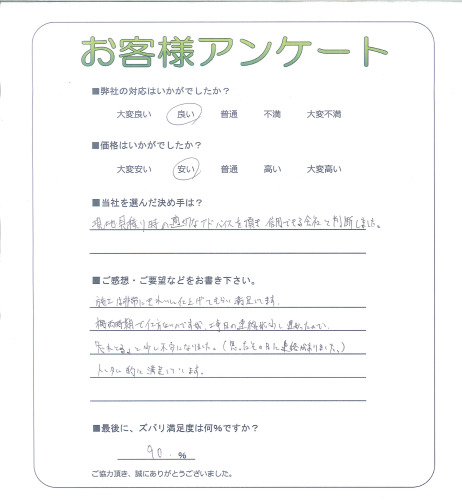 お客様アンケート
■弊社の対応はいかがでしたか？
大変良い 良い 普通 不満 大変不満
■価格はいかがでしたか？
大変安い 安い 普通 高い 大変高い
■当社を選んだ決め手は？
現地見積り時の適切なアドバイスを頂き 信用できる会社と判断しました。
■ご感想・ご要望などをお書き下さい。
施工は非常にきれいに仕上げてもらい満足してます。
仕方ないのですが、 の連絡が少し遅れたので、
少し不安になりました。(思ったその日に連絡がありました。)
トータル的に満足しています。
■最後に、ズバリ満足度は何%ですか？
90. %
ご協力頂き、誠にありがとうございました。